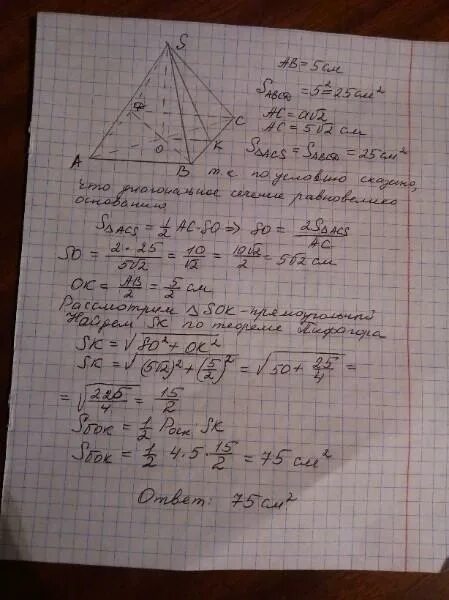 S
Ф
C
K
O
A
B
AB = 5 см
S_ABCD = 5² = 25 см²
AC = a√2
AC = 5√2 см
S_ΔACS = S_ABCD = 25 см²
т.к. по условию сказано,
что диагональное сечение равновелико
основанию
S_ΔACS = 1/2 AC·SO ⇒ SO = 2S_ΔACS/AC
SO = 2·25/5√2 = 10/√2 = 10√2/2 = 5√2 см
OK = AB/2 = 5/2 см
Рассмотрим ΔSOK - прямоугольный
Найдем SK по теореме Пифагора
SK = √SO² + OK²
SK = √(5√2)² + (5/2)² = √50 + 25/4 =
= √225/4 = 15/2
Sбок = 1/2 Pосн·SK
Sбок = 1/2 4·5·15/2 = 75 см²
Ответ: 75 см²